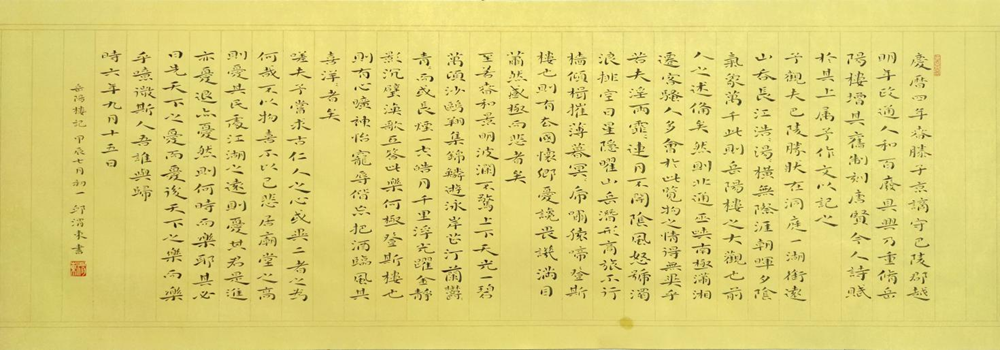 慶曆四年春滕子京謫守巴陵郡越
明年政通人和百廢具興乃重修岳
陽樓增其舊制刻唐賢今人詩賦
於其上屬予作文以記之
予觀夫巴陵勝狀在洞庭一湖銜遠
山吞長江浩々湯々橫無際涯朝暉夕陰
氣象萬千此則岳陽樓之大觀也前
人之述備矣然則北通巫峽南極瀟湘
遷客騷人多會於此覽物之情得無異乎
若夫淫雨霏々連月不開陰風怒號濁
浪排空日星隱曜山岳潛形商旅不行
檣傾楫摧薄暮冥々虎嘯猿啼登斯
樓也則有去國懷鄉憂讒畏譏滿目
蕭然感極而悲者矣
至若春和景明波瀾不驚上下天光一碧
萬頃沙鷗翔集錦鱗游泳岸芷汀蘭鬱々
青々而或長煙一空皓月千里浮光躍金靜
影沉璧漁歌互答此樂何極登斯樓也
則有心曠神怡寵辱偕忘把酒臨風其
喜洋々者矣
嗟夫予嘗求古仁人之心或異二者之為
何哉不以物喜不以己悲居廟堂之高
則憂其民處江湖之遠則憂其君是進
亦憂退亦憂然則何時而樂耶其必
曰先天下之憂而憂後天下之樂而樂
乎噫微斯人吾誰與歸
時六年九月十五日
岳陽樓記 甲辰七月初一 邱渭東書